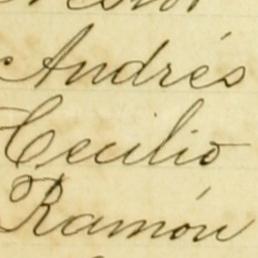 Andrés
Cecilio
Ramón